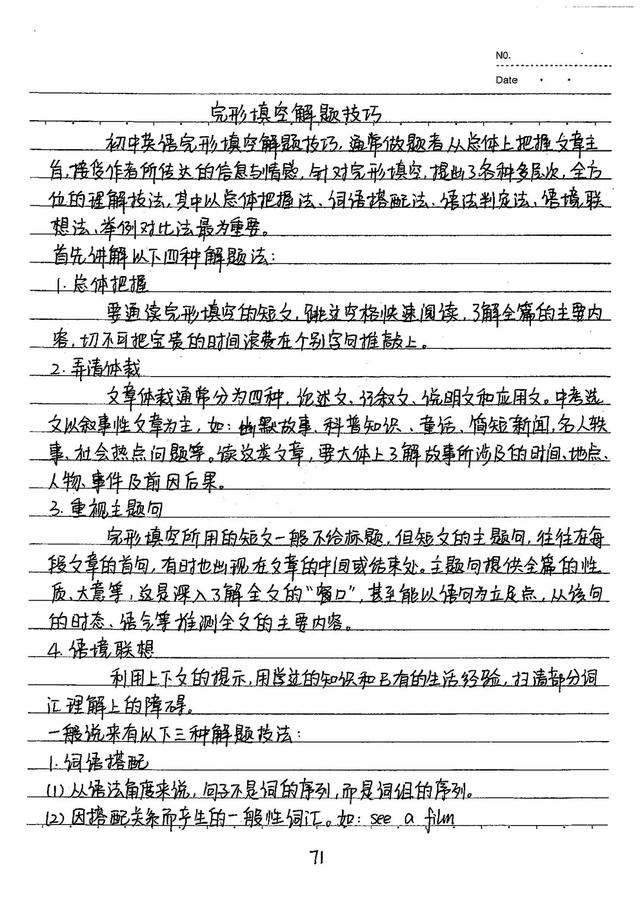 NO.
Date
完形填空解题技巧
初中英语完形填空解题技巧，通常做题者从总体上把握文章主
旨，接受作者所传达的信息与情感，针对完形填空，提出了各种多层次，全方
位的理解技法，其中以总体把握法、词语搭配法、语法判定法、语境联
想法、举例对比法最为重要。
首先讲解以下四种解题法：
1. 总体把握
要通读完形填空的短文，跳过空格快速阅读，了解全篇的主要内
容，切不可把宝贵的时间浪费在个别字句推敲上。
2. 弄清体裁
文章体裁通常分为四种，论述文、记叙文、说明文和应用文。中考选
文以叙事性文章为主，如：幽默故事、科普知识、童话、简短新闻，名人轶
事、社会热点问题等。读这类文章，要大体上了解故事所涉及的时间、地点、
人物、事件及前因后果。
3. 重视主题句
完形填空所用的短文一般不给标题，但短文的主题句，往往在每
段文章的首句，有时也出现在文章的中间或结束处。主题句提供全篇的性
质、大意等，这是深入了解全文的“窗口”，甚至能以语句为立足点，从该句
的时态、语气等推测全文的主要内容。
4. 语境联想
利用上下文的提示，用学过的知识和已有的生活经验，扫清部分词
汇理解上的障碍。
一般说来有以下三种解题技法：
1. 词语搭配
(1) 从语法角度来说，句子不是词的序列，而是词组的序列。
(2) 因搭配关系而产生的一般性词汇。如：see a film
71